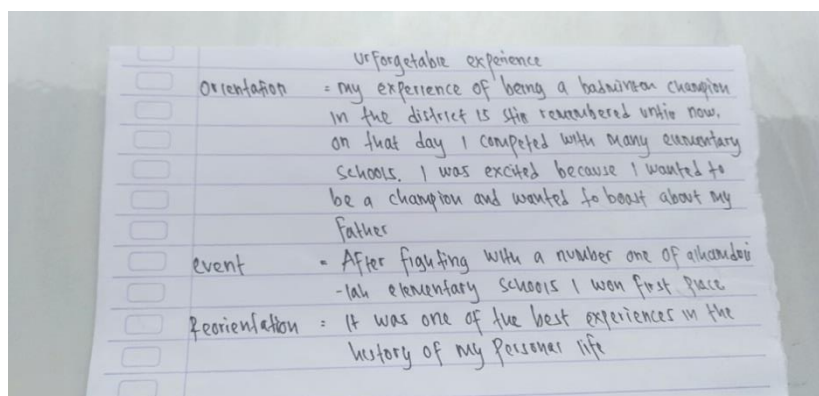 Urforgetable experience
Orientation = my experience of being a badminton champion
in the district is still remembered until now.
on that day I competed with many elementary
schools. I was excited because I wanted to
be a champion and wanted to boast about my
father
event = After fighting with a number one of alhamdui
-lah elementary schools I won first place
Reorientation = It was one of the best experiences in the
history of my personal life